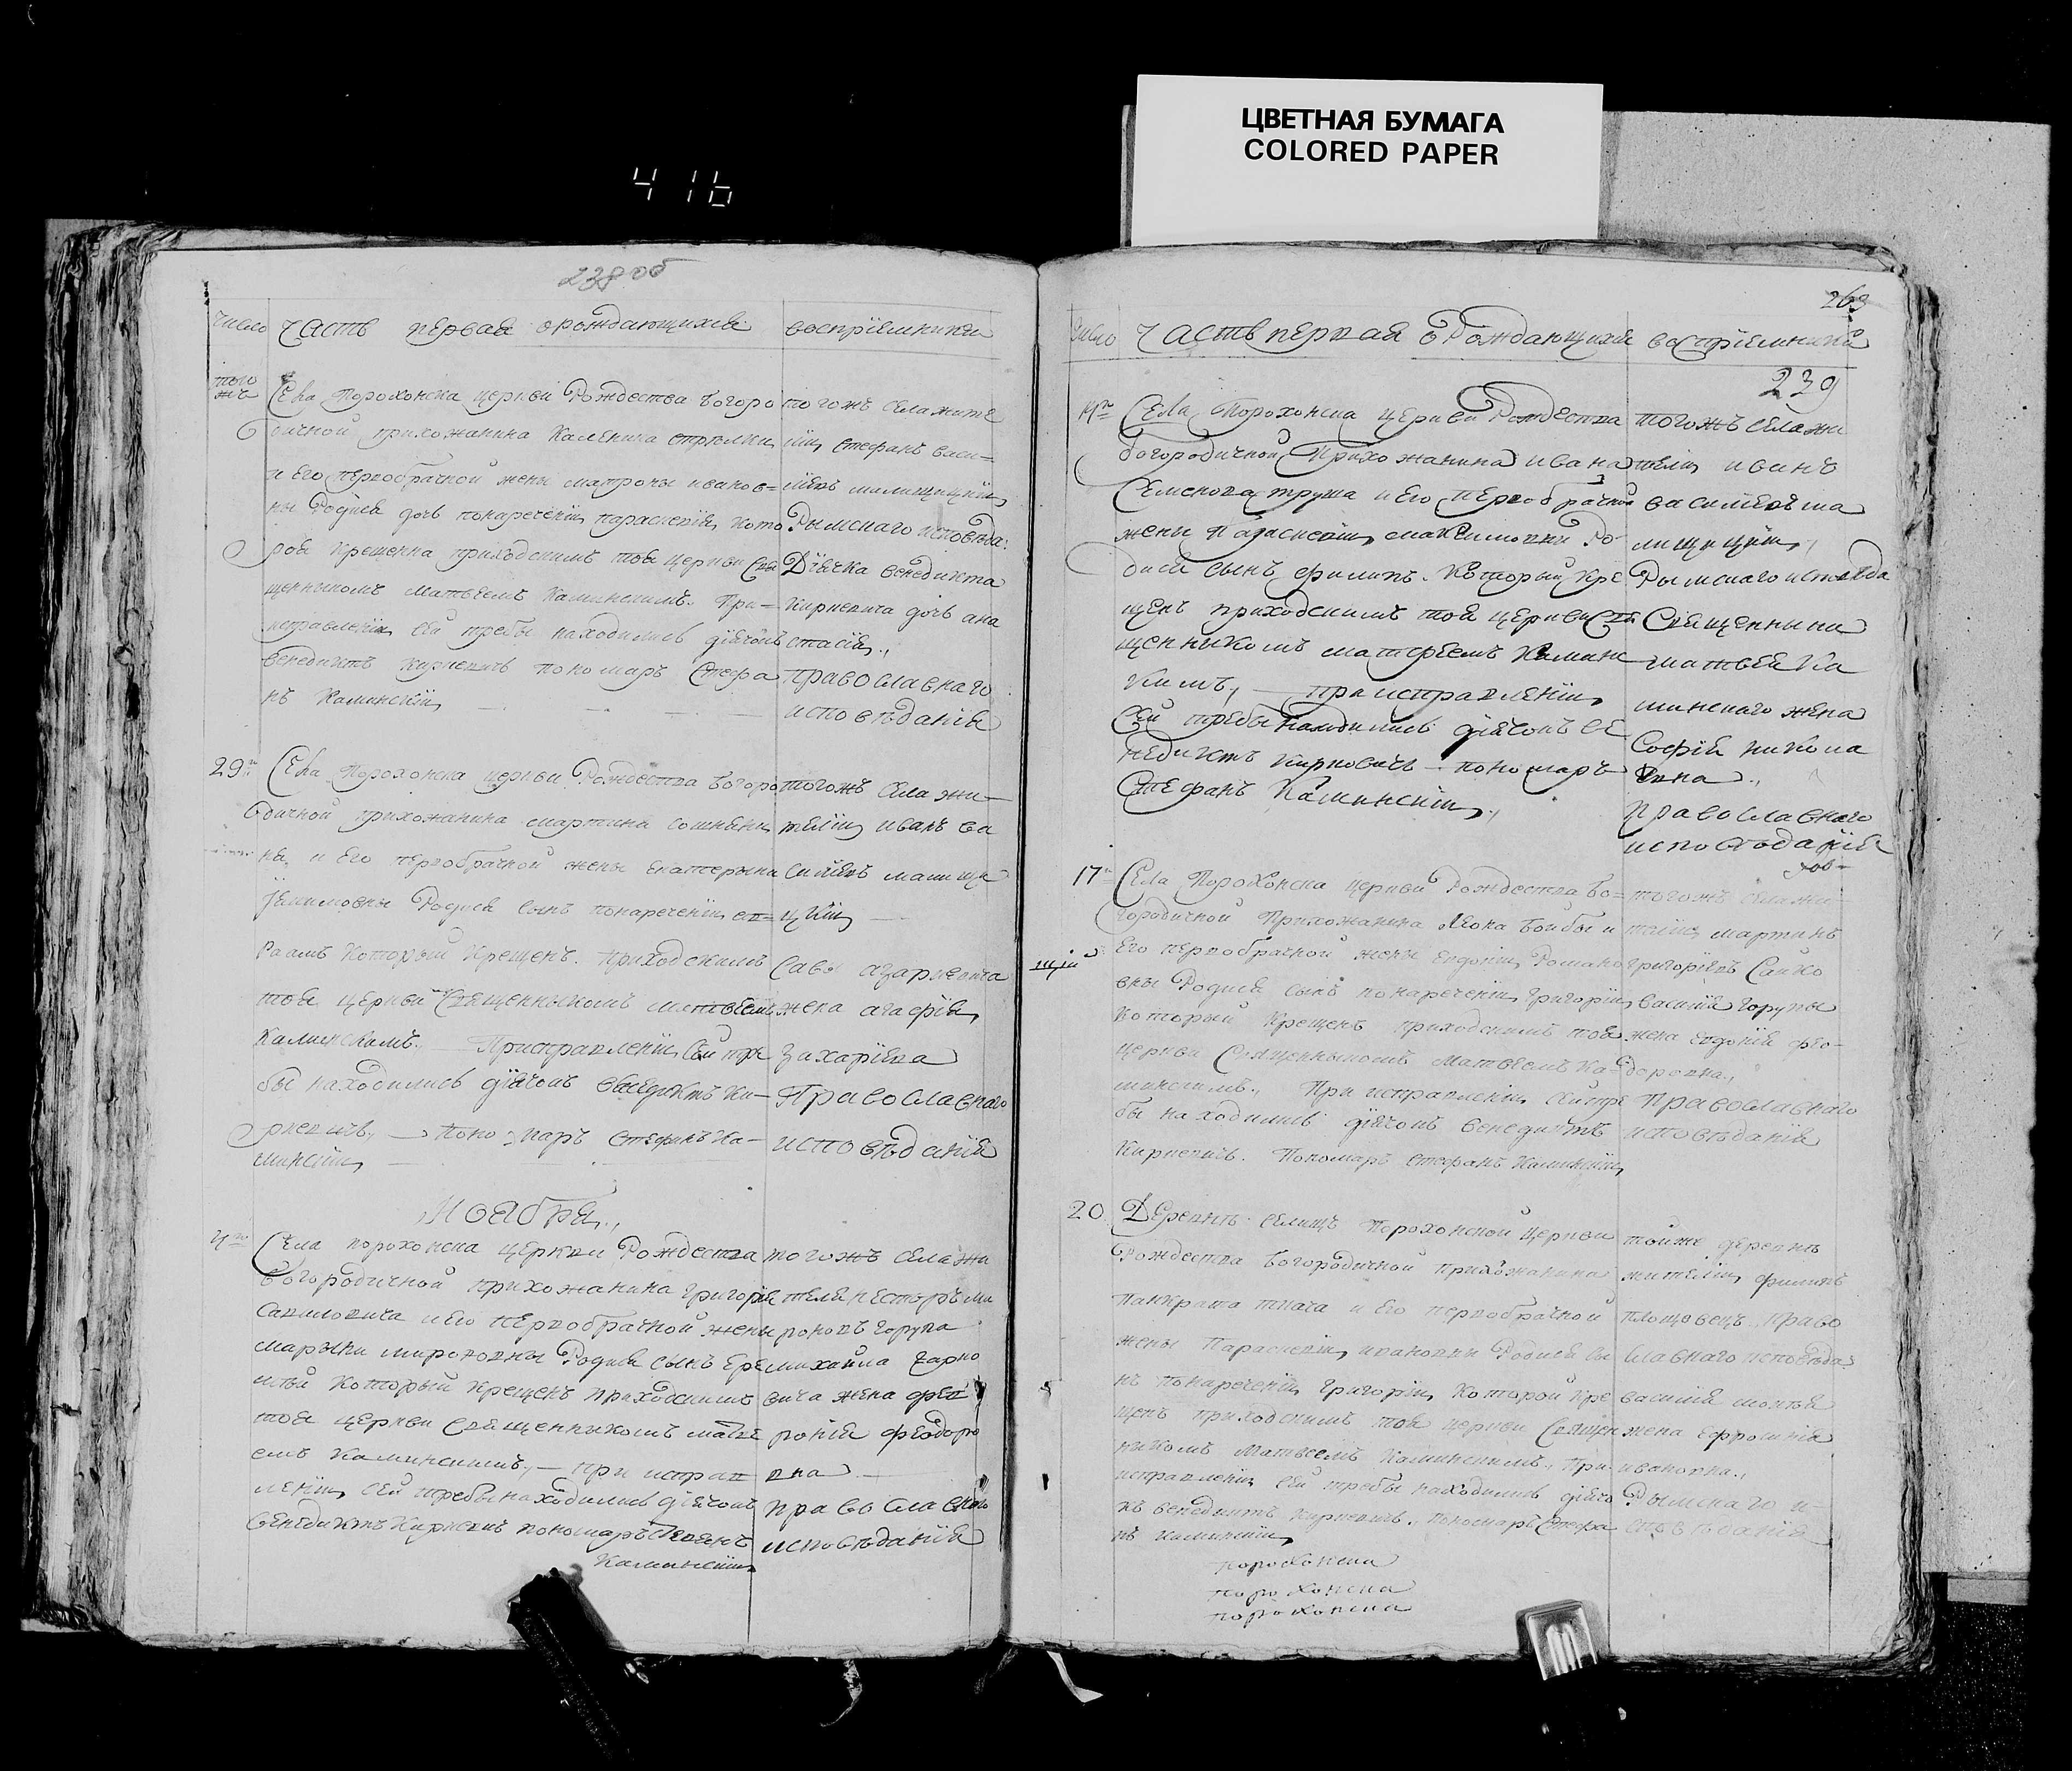 ЦВЕТНАЯ БУМАГА
COLORED PAPER
416
238 об
число
часть первая о рождающихся
воспрїемники
тогожъ
Села Порохонска церкви Рождества Богоро
дичной прихожанина Каленика
и его первобрачной жены матроны иванов=
ны Родися дочь понареченїи параскевїя кото
рая Крещенна приходскимъ тоя церкви Свя
щенникомъ Матвѣемъ Каминскимъ. При=
исправленїи сей требы находились дїячокъ
венедиктъ кирневичъ пономаръ Стефа
нъ Каминскїи
тогожъ села жите
лїи Стефанъ васи=
Рымскаго исповѣда:
Дїячка венедикта
Кирневича дочь ана
стасїя.,
православнаго
исповѣданїя
29
Села Порохонска церкви Рождества Богоро
дичной прихожанина мартина
и его первобрачной жены екатерыны
Родися сынъ понареченїи ав=
раамъ Который Крещенъ. Приходскимъ
тоя церкви Священныкомъ матвѣемъ
Каминскимъ. Присправленїи Сей тре
бы находились дїячокъ венедиктъ Ки=
рневичъ, — Поно маръ Стефанъ Ка=
минскїи
тогожъ села жи=
телїи иванъ ва
Савы азарневича
жена агафїя
Захарїева
Православнаго
исповѣданїя
Ноября.,
4го
Села порохонска церкви Рождества
богородичной прихожанина григорїя
Савиловича и его первобрачной жены
марыни мироновны Родися сынъ Ере
мѣй Который Крещенъ приходскимъ
тоя церкви священныкомъ матвѣ
емъ Каминскимъ., — при исправ
ленїи сей требы находились дїячокъ
венедиктъ Кирневичъ пономаръ Стефанъ
Каминскїи
тогожъ села жи
тели несторъ ми
роновъ горупа
михаила
вича жена фев
ронїя феодоро
вна —
православнаго
исповѣданїя
263
число
часть первая о Рождающихся
воспрїемники
239
14го
Села Порохонска церкви Рождества
богородичной Прихожанина ивана
Семенова труша и его первобрачной
жены Параскевїи максимовни Ро=
дися сынъ филипъ. Который кре
щенъ приходскимъ тоя церкви Свя
щенникомъ матфеемъ Каминс
кимъ, — при исправленїи
Сей требы находились дїячокъ ве
недиктъ кирневичъ — пономаръ
Стефанъ Каминскїи.,
тогожъ села жи
телїи иванъ
василїевъ ма
Рымскаго исповѣда
Священника
матвея Ка
минскаго жена
Софїя никола
евна.,
православнаго
исповѣданїя
17
Села Порохонска церкви Рождества Бо=
городичной Прихожанина и
Его первобрачной жены евдокїи Романо
вны Родися сынъ понареченїи григорїи
Который Крещенъ приходскимъ тоя
церкви Священныкомъ Матвѣемъ Ка=
минскимъ., При исправленїи Сей тре
бы находились дїячокъ венедиктъ
Кирневичъ. Пономаръ стефанъ Каминскїи
тогожъ села жи
телїи мартинъ
григорїевъ
василїя горупы
жена евдокїя фео=
доровна.,
Православнаго
исповѣданїя
20
Деревнѣ селищъ Порохонской церкви
Рождества Богородичной прихожанина
Панкрата ткача и его первобрачной
жены Параскевїи ивановни Родися сы
нъ понареченїи григорїи Которой кре
щенъ приходскимъ тоя церкви Священ
никомъ Матвеемъ Каминскимъ., При
исправленїи сей требы находились дїячо
къ венедиктъ Кирневичъ., пономаръ Стефа
нъ Каминскїи
тойже деревнѣ
жителїи филипъ
право
славнаго исповѣда
василїя
жена ефросинїя
ивановна.,
Рымскаго и=
сповѣданїя
порохонска
порохонска
порохонска